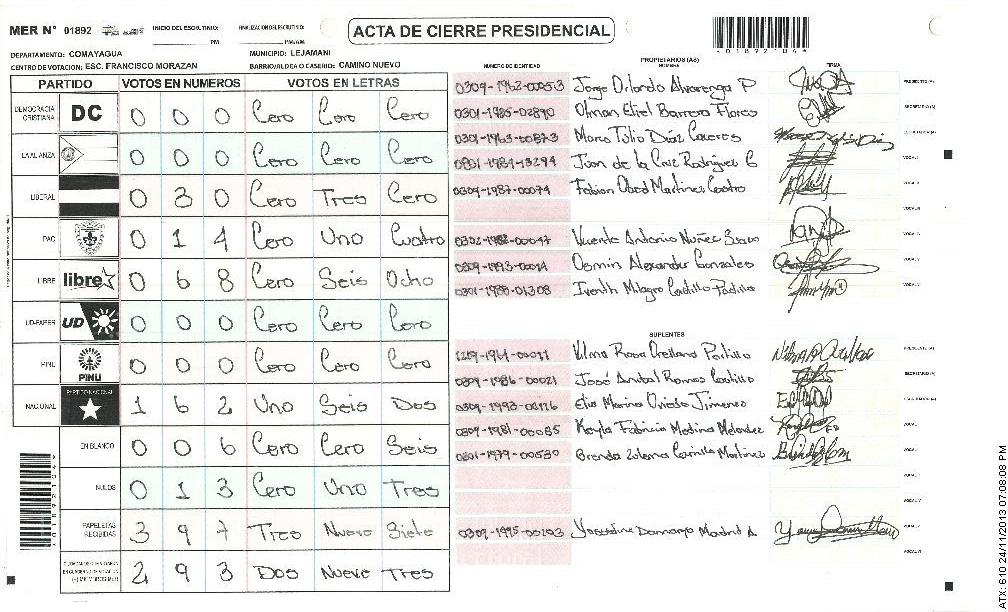 MER N° 01892 INICIO DEL ESCRUTINIO: PM FINALIZACION DEL ESCRUTINIO: PM/AM ACTA DE CIERRE PRESIDENCIAL
DEPARTAMENTO: COMAYAGUA MUNICIPIO: LEJAMANI
CENTRO DE VOTACION: ESC. FRANCISCO MORAZAN BARRIO/ALDEA O CASERIO: CAMINO NUEVO
PARTIDO VOTOS EN NUMEROS VOTOS EN LETRAS
DEMOCRACIA CRISTIANA DC 0 0 0 Cero Cero Cero
LA ALIANZA 0 0 0 Cero Cero Cero
LIBERAL 0 3 0 Cero Tres Cero
PAC 0 1 4 Cero Uno Cuatro
LIBRE libre 0 6 8 Cero Seis Ocho
UD-FAPER UD 0 0 0 Cero Cero Cero
PINU PINU 0 0 0 Cero Cero Cero
NACIONAL PARTIDO NACIONAL 1 6 2 Uno Seis Dos
EN BLANCO 0 0 6 Cero Cero Seis
NULOS 0 1 3 Cero Uno Tres
PAPELETAS RECIBIDAS 3 9 7 Tres Nueve Siete
2 9 3 Dos Nueve Tres
NUMERO DE IDENTIDAD PROPIETARIOS (AS) NOMBRE FIRMA
0309-1962-00053 Jorge Orlando Alvarenga P
0301-1985-02890 Olman Eliel Barrera Flores
0301-1963-00873 Marco Tulio Díaz Caceres
0801-1984-13294 Juan de la Cruz Rodríguez
0309-1987-00074 Fabian Obed Martinez Castro
Vicente Antonio Nuñez
Osmin Alexander Gonzales
0301-1988-01308 Iveth Milagro Castillo Padilla
SUPLENTES
Vilma Rosa Orellana Portillo
0309-1986-00021 José Anibal Ramos Castillo
Elia Marina Oviedo Jimenez
0309-1981-00085 Keyla Fabricia Medina Melendez
0301-1979-00530 Brenda Zulema Carrillo Martinez
Madrid A
ATX: 610 24/11/2013 07:08:08 PM